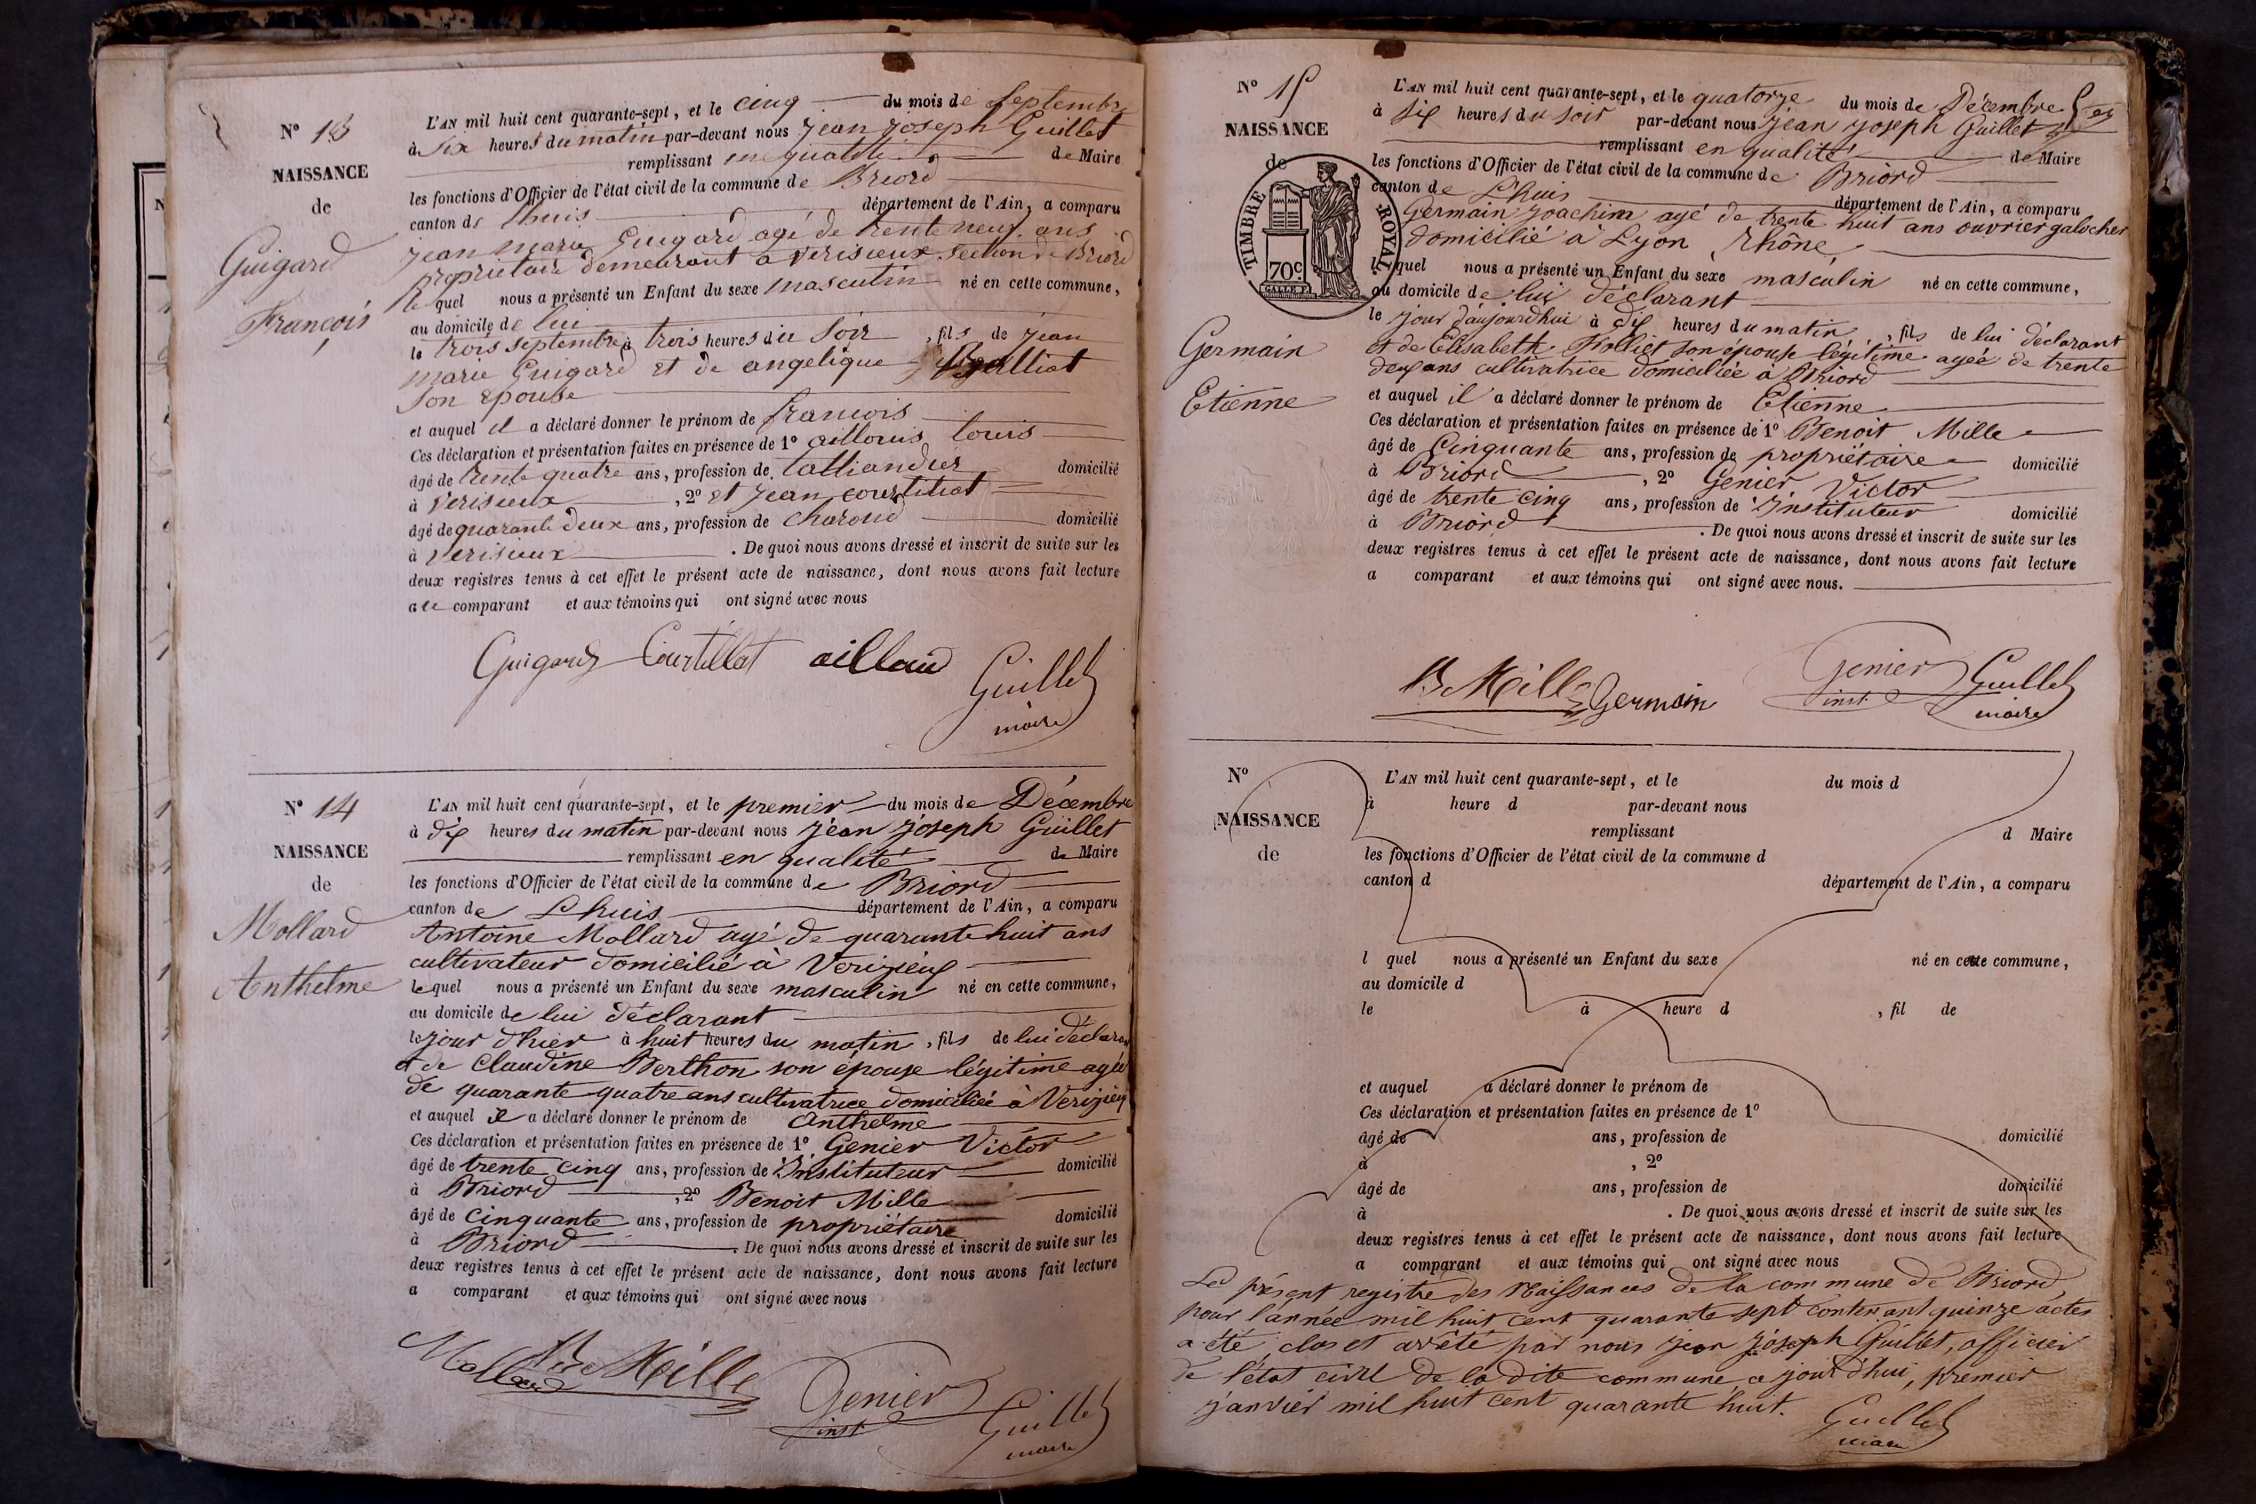 N° 13
NAISSANCE
de
Guigard
François
L'AN mil huit cent quarante-sept, et le cinq du mois de Septembre
à Six heures du matin par-devant nous Jean Joseph Guillet
remplissant en qualité de Maire
les fonctions d'Officier de l'état civil de la commune de Briord
canton de lhuis département de l'Ain, a comparu
jean marie Guigard agé de trente neuf ans
propriétaire demeurant a verisieux Section de Briord
le quel nous a présenté un Enfant du sexe masculin né en cette commune,
au domicile de lui
le trois septembre à trois heures du Soir, fils de jean
marie Guigard et de angelique
Son epouse
et auquel il a déclaré donner le prénom de francois
Ces déclaration et présentation faites en présence de 1° louis
âgé de trente quatre ans, profession de domicilié
à verisieux, 2° et jean courtillat
âgé de quarante deux ans, profession de domicilié
à verisieux. De quoi nous avons dressé et inscrit de suite sur les
deux registres tenus à cet effet le présent acte de naissance, dont nous avons fait lecture
au comparant et aux témoins qui ont signé avec nous
Guigard Courtillat aillaud Guillet
maire
N° 14
NAISSANCE
de
Mollard
Anthelme
L'AN mil huit cent quarante-sept, et le premier du mois de Décembre
à dix heures du matin par-devant nous jean joseph Guillet
remplissant en qualité de Maire
les fonctions d'Officier de l'état civil de la commune de Briord
canton de Lhuis département de l'Ain, a comparu
Antoine Mollard âgé de quarante huit ans
cultivateur domicilié à Verizieux
le quel nous a présenté un Enfant du sexe masculin né en cette commune,
au domicile de lui déclarant
le jour d'hier à huit heures du matin, fils de lui déclarant
et de Claudine Berthon son épouse légitime agée
de quarante quatre ans cultivatrice domiciliée à Verizieux
et auquel il a déclaré donner le prénom de Anthelme
Ces déclaration et présentation faites en présence de 1° Genier Victor
âgé de trente cinq ans, profession de Instituteur domicilié
à Briord, 2° Benoit Mille
âgé de cinquante ans, profession de propriétaire domicilié
à Briord. De quoi nous avons dressé et inscrit de suite sur les
deux registres tenus à cet effet le présent acte de naissance, dont nous avons fait lecture
a comparant et aux témoins qui ont signé avec nous
Mollard Mille Genier Guillet
inst maire
N° 15
NAISSANCE
de
TIMBRE ROYAL
70c
Germain
Etienne
L'AN mil huit cent quarante-sept, et le quatorze du mois de Décembre
à six heures du soir par-devant nous jean joseph Guillet
remplissant en qualité de Maire
les fonctions d'Officier de l'état civil de la commune de Briord
canton de Lhuis département de l'Ain, a comparu
Germain Joachim agé de trente huit ans ouvrier galocher
domicilié à Lyon Rhône
le quel nous a présenté un Enfant du sexe masculin né en cette commune,
au domicile de lui déclarant
le jour d'aujourdhui à dix heures du matin, fils de lui déclarant
et de Elisabeth Holliet son épouse légitime agée de trente
deux ans cultivatrice domiciliée à Briord
et auquel il a déclaré donner le prénom de Etienne
Ces déclaration et présentation faites en présence de 1° Benoit Mille
âgé de Cinquante ans, profession de propriétaire domicilié
à Briord, 2° Genier Victor
âgé de trente cinq ans, profession de Instituteur domicilié
à Briord. De quoi nous avons dressé et inscrit de suite sur les
deux registres tenus à cet effet le présent acte de naissance, dont nous avons fait lecture
a comparant et aux témoins qui ont signé avec nous.
B Mille Germain Genier Guillet
inst maire
N°
NAISSANCE
de
L'AN mil huit cent quarante-sept, et le du mois d
à heure d par-devant nous
remplissant d Maire
les fonctions d'Officier de l'état civil de la commune d
canton d département de l'Ain, a comparu
l quel nous a présenté un Enfant du sexe né en cette commune,
au domicile d
le à heure d , fil de
et auquel a déclaré donner le prénom de
Ces déclaration et présentation faites en présence de 1°
âgé de ans, profession de domicilié
à , 2°
âgé de ans, profession de domicilié
à . De quoi nous avons dressé et inscrit de suite sur les
deux registres tenus à cet effet le présent acte de naissance, dont nous avons fait lecture
a comparant et aux témoins qui ont signé avec nous
Le présent registre des Naissances de la commune de Briord,
pour l'année mil huit cent quarante sept contenant quinze actes
a été clos et arrêté par nous jean joseph Guillet, officier
de l'état civil de la dite commune ce jourd'hui, premier
janvier mil huit cent quarante huit.
Guillet
maire